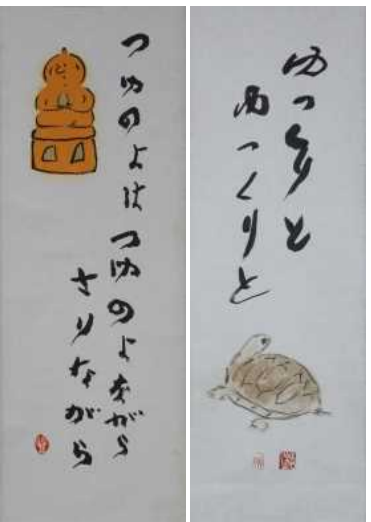 つゆのよは つゆのよながら
さりながら
ゆっくりと
ゆっくりと